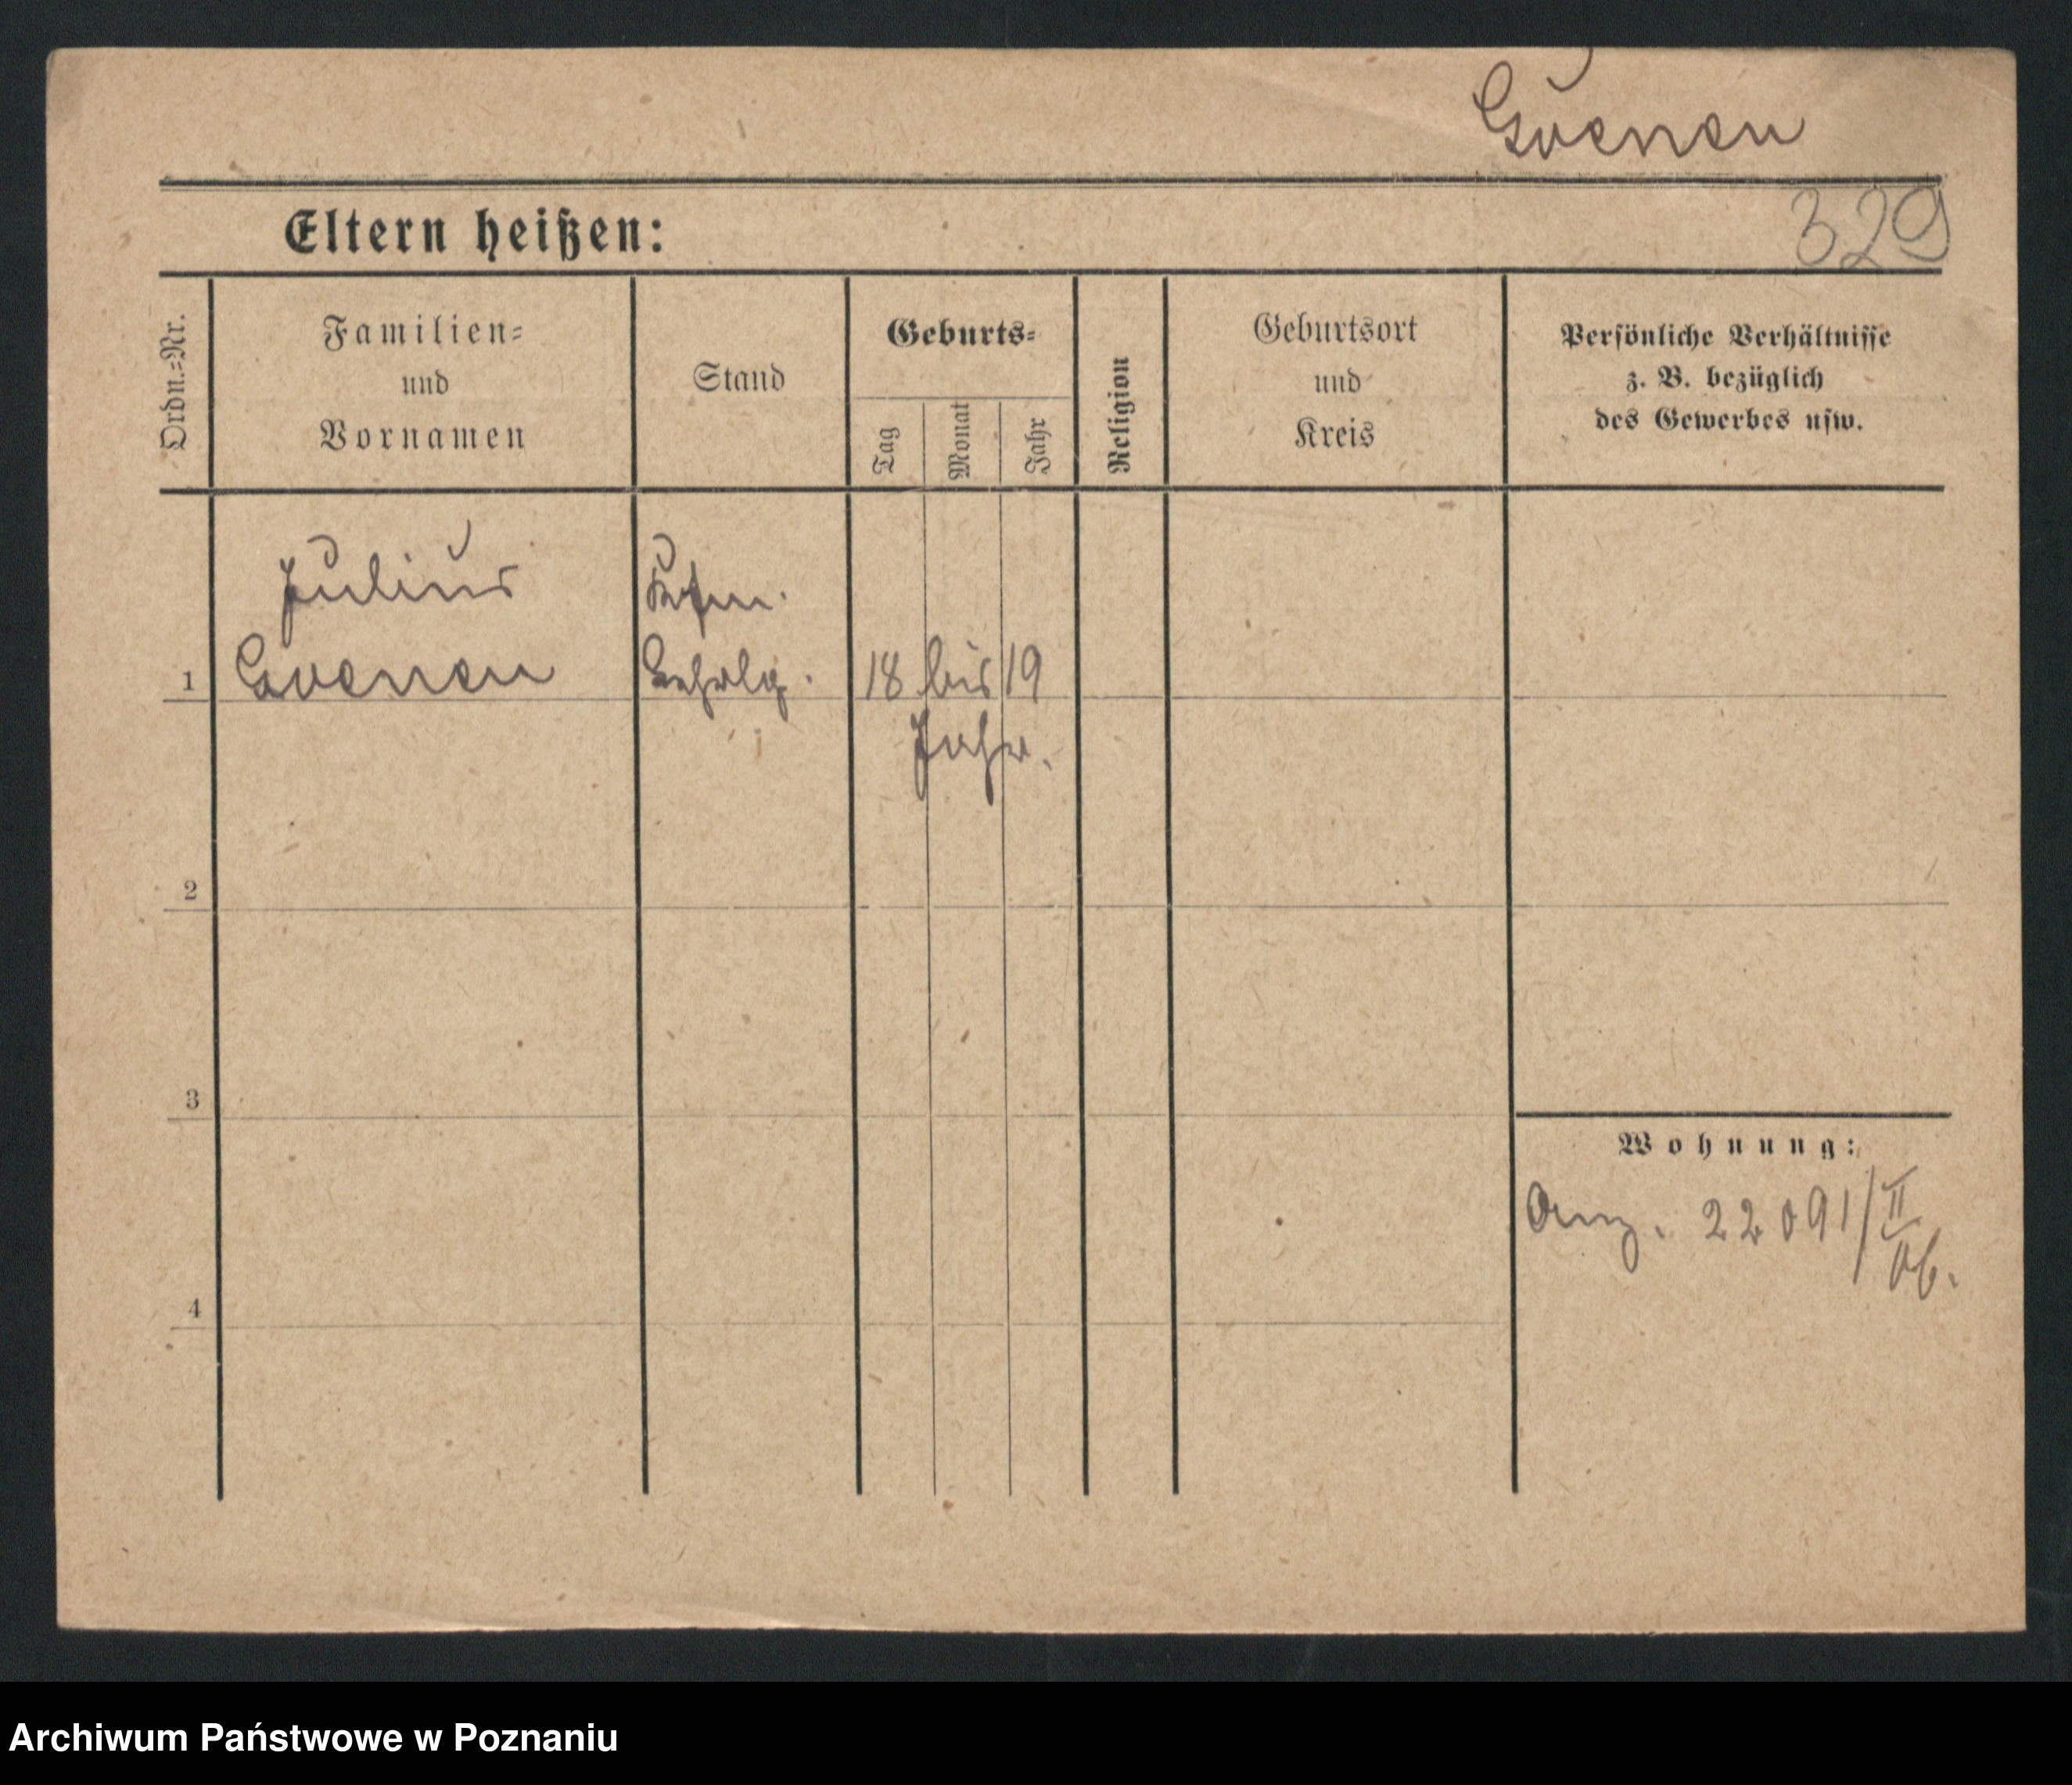 329
Eltern heißen:
Ordn.-Nr.
Familien-
und
Vornamen
Stand
Geburts-
Tag
Monat
Jahr
Religion
Geburtsort
und
Kreis
Persönliche Verhältnisse
z. B. bezüglich
des Gewerbes usw.
Julius
Kfm.
1
Lehrlg.
18 bis 19
Jahr.
2
3
4
Wohnung:
Anz. 22091/II
06.
Archiwum Państwowe w Poznaniu